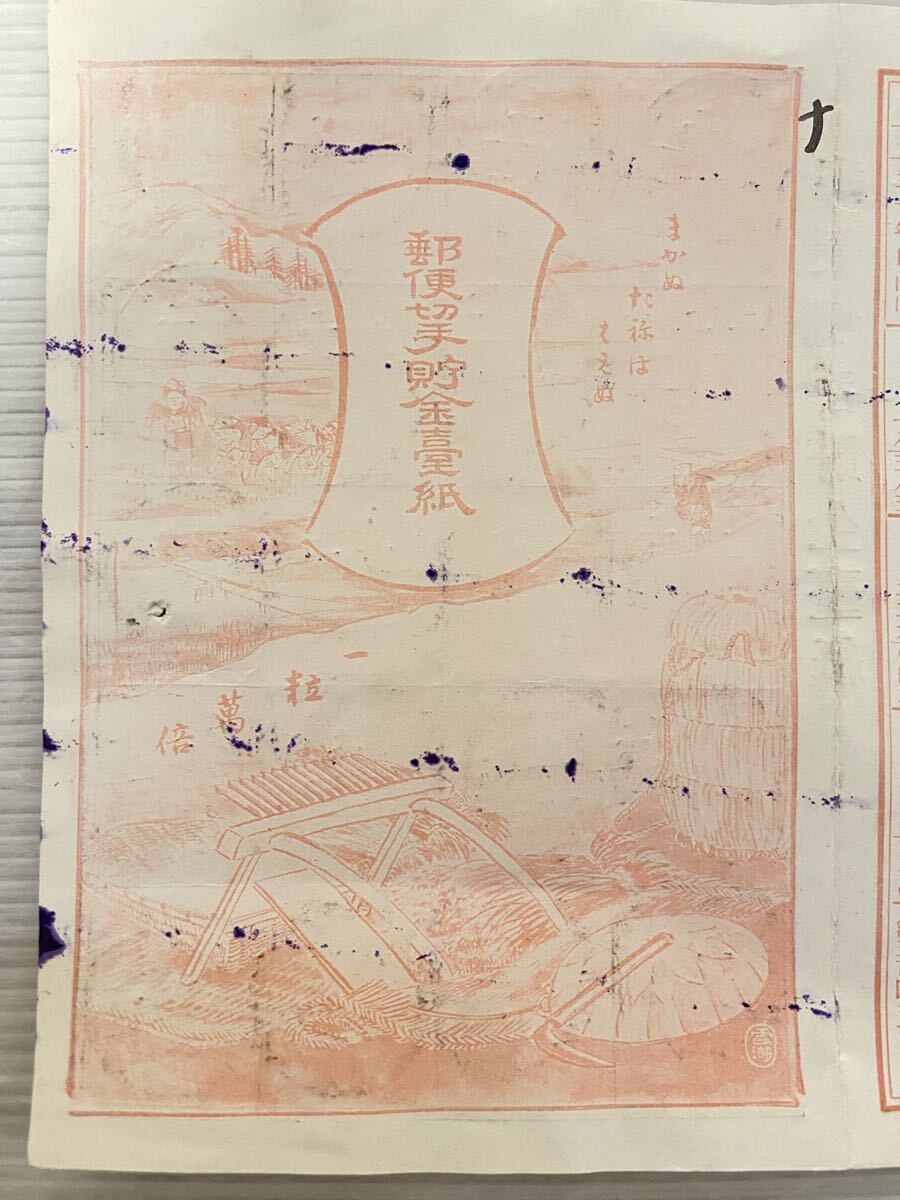 ナ
まかぬ
た祢は
はえぬ
郵便切手貯金臺紙
一粒萬倍